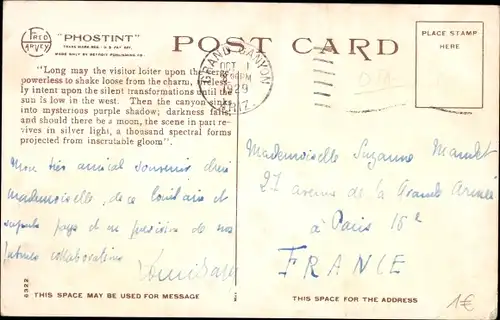 FRED HARVEY
"PHOSTINT"
TRADE MARK REG. U.S. PAT. OFF.
MADE ONLY BY DETROIT PUBLISHING CO.
POST CARD
PLACE STAMP
HERE
GRAND CANYON
OCT 1
PM
1929
ARIZ.
"Long may the visitor loiter upon the verge,
powerless to shake loose from the charm, tirelessly
intent upon the silent transformations until the
sun is low in the west. Then the canyon sinks
into mysterious purple shadow; darkness falls,
and should there be a moon, the scene in part re-
vives in silver light, a thousand spectral forms
projected from inscrutable gloom".
Mon très amical souvenir, chère
mademoiselle, de ce lointain et
superbe pays et en prévision de nos
futures collaborations
Mademoiselle Suzanne
27 avenue de la Grande Armée
à Paris 16e
FRANCE
6322
THIS SPACE MAY BE USED FOR MESSAGE
THIS SPACE IS FOR THE ADDRESS
1€